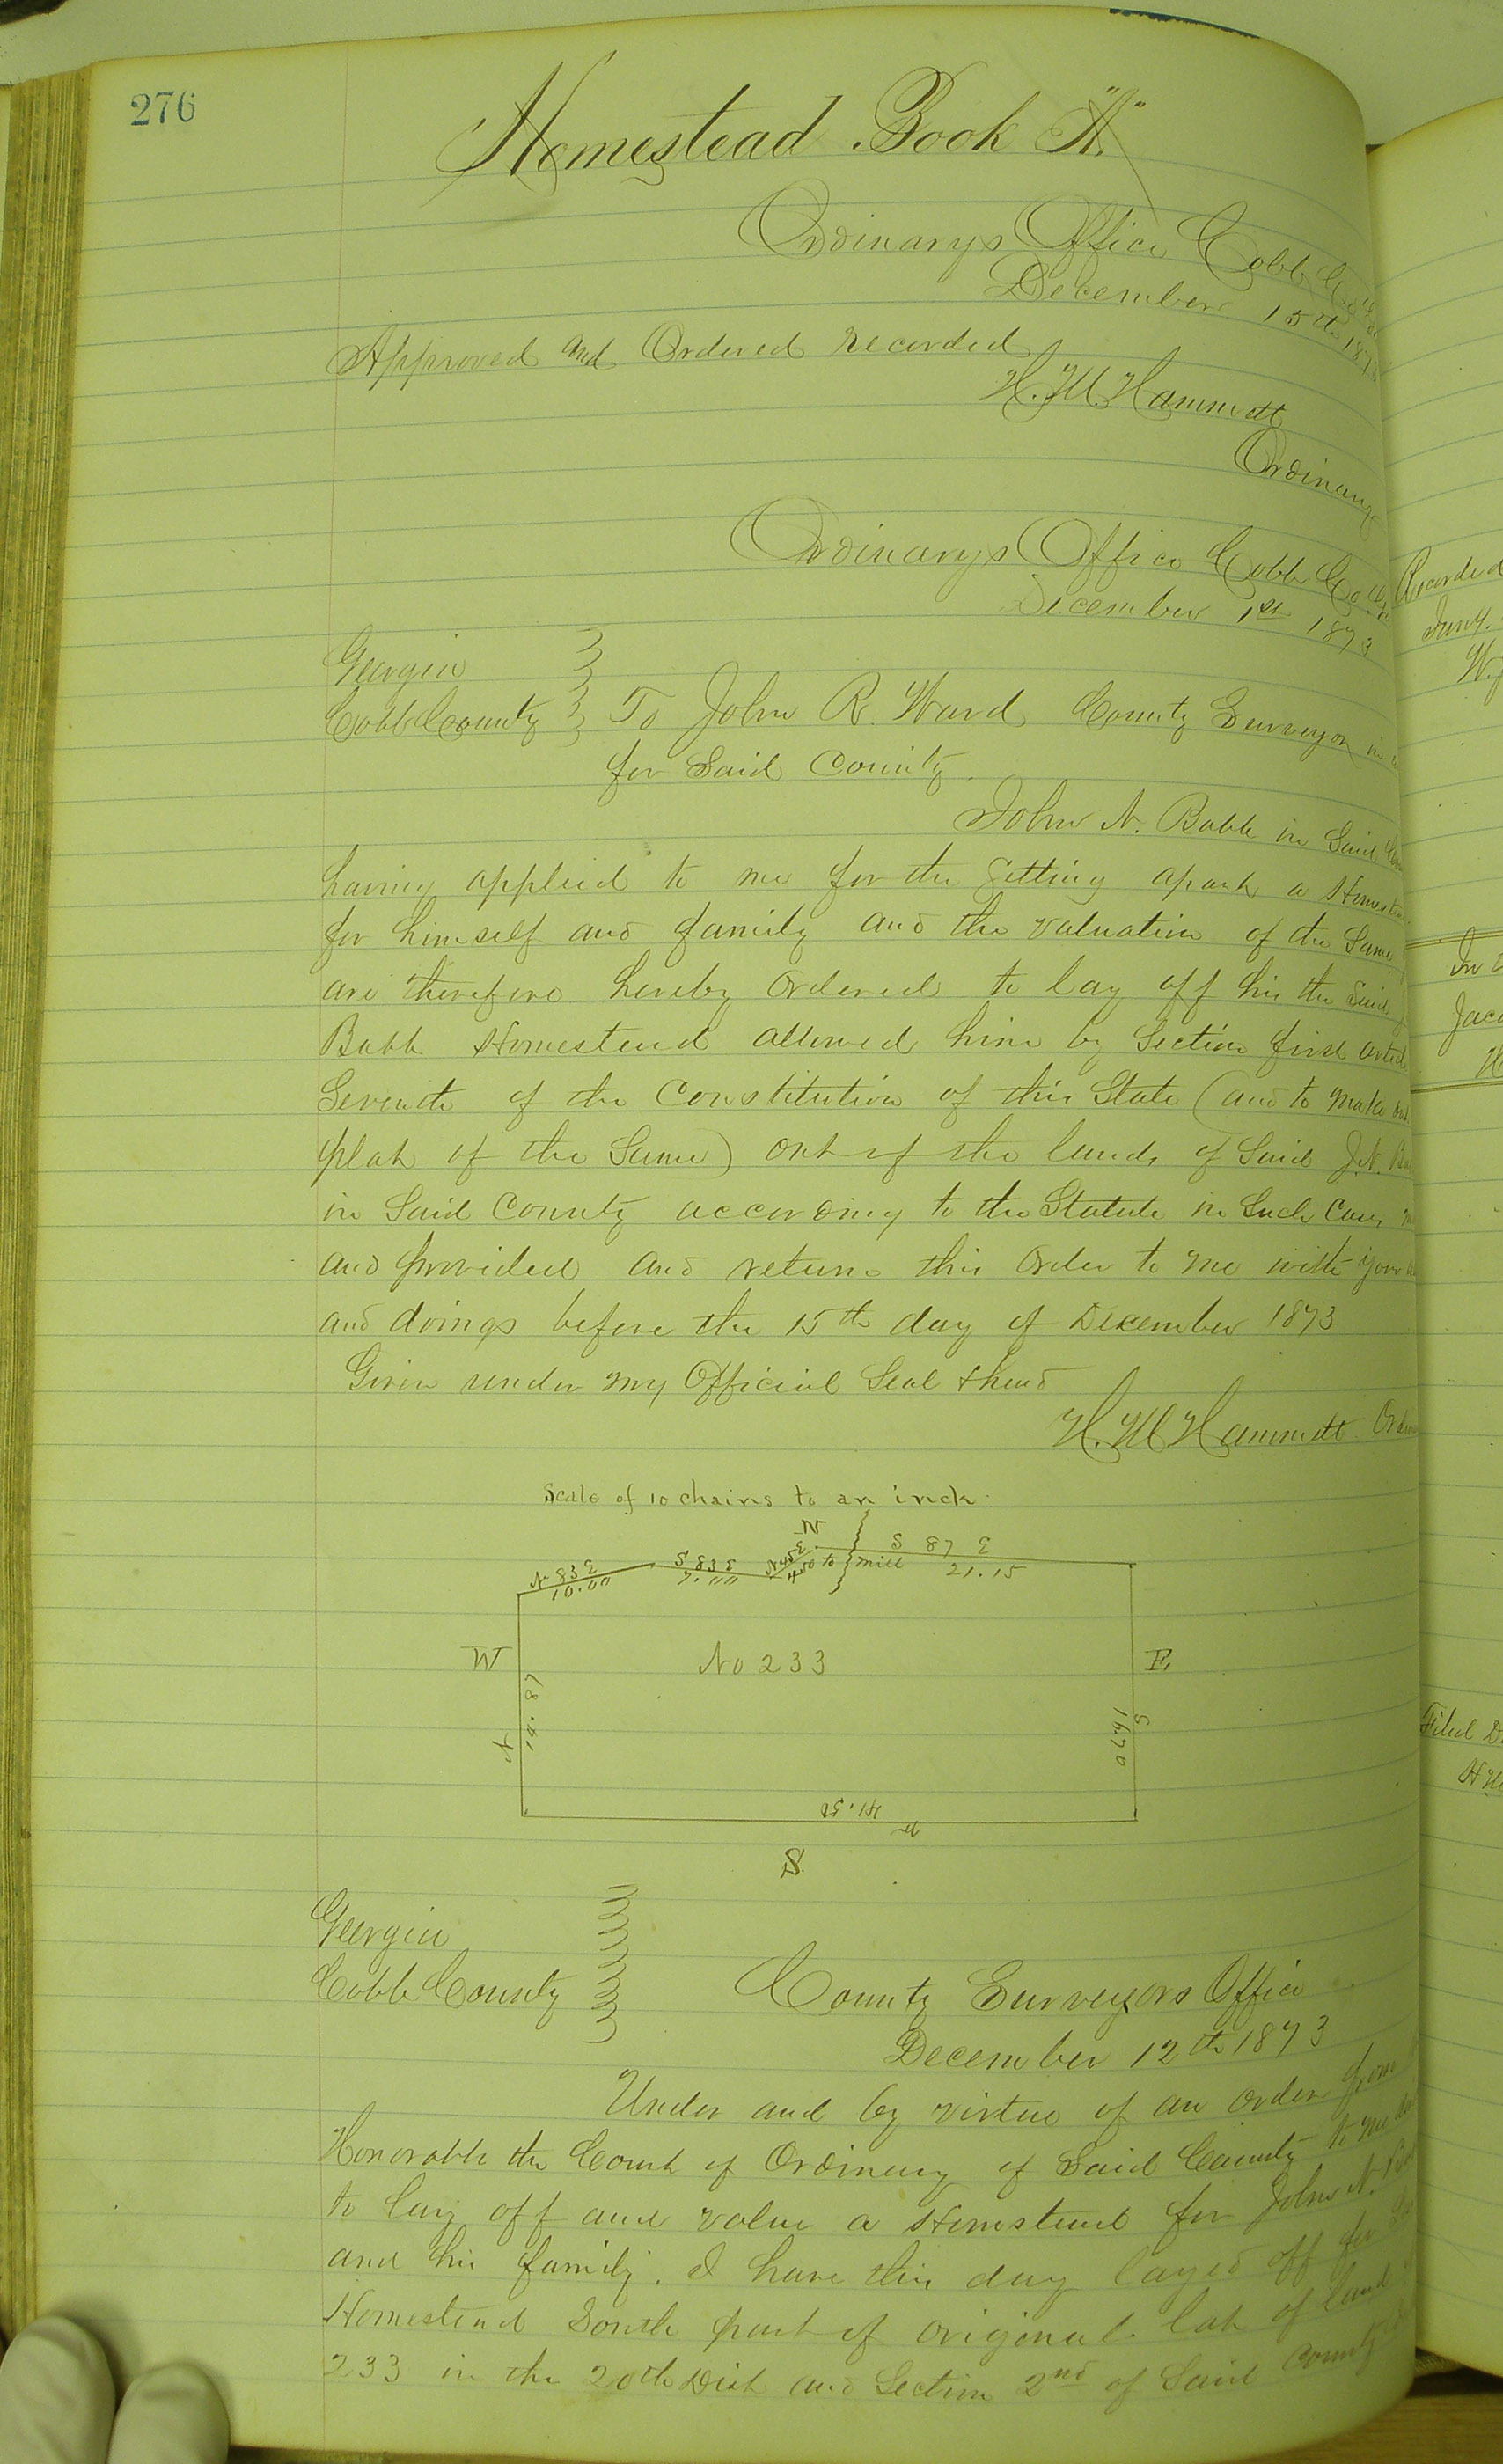 276
Homestead Book "A"
Ordinarys Office Cobb Co
December 15th 187
Approved and Ordered recorded
H. M. Hammett
Ordinary
Ordinarys Office Cobb Co
December 1st 1873
Georgia
Cobb County } To John R. Ward County Surveyor in
for Said County.
John N. Babb in Said
having applied to me for the Setting apart a Homest
for himself and family and the valuation of the Same
are therefore hereby Ordered to lay off his the Said
Babb Homestead allowed him by Section first artic
Seventh of the Constitution of this State (and to make out
plat of the Same) out of the lands of Said J. N. Ba
in Said County according to the Statute in Such Cases
and provided and return this Order to me with your
and doings before the 15th day of December 1873
Given under my Official Seal & hand
H. M Hammett Ordin
Scale of 10 chains to an inch.
N
N 83 E
10.00
S 83 E
7.00
N 45 E
4.50 to mill
S 87 E
21.15
W
No 233
E
N
14.87
S
16.70
41.50
W
S.
Georgia
Cobb County
County Surveyors Office
December 12th 1873
Under and by virtue of an order from
Honorable the Court of Ordinary of Said County to me
to lay off and value a Homestead for John N.
and his family. I have this day layed off for
Homestead South part of original lot of land
233 in the 20th Dist and Section 2nd of Said County
Recorded
Jany.
In
Jac
Filed D